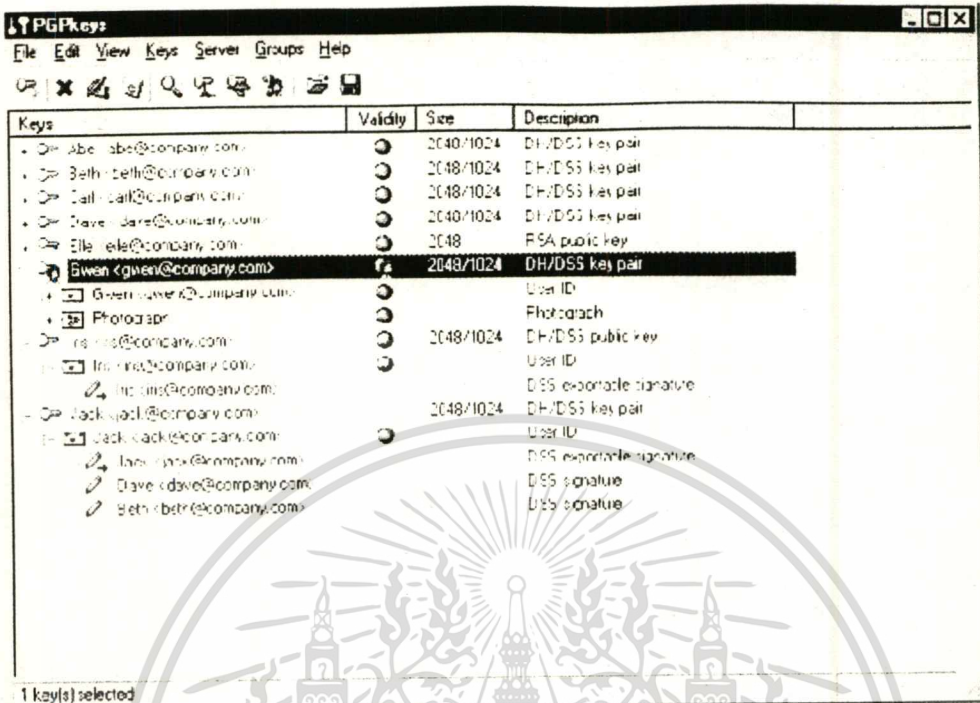 PGPkeys
File Edit View Keys Server Groups Help
Keys Validity Size Description
Abe <abe@company.com> 2048/1024 DH/DSS key pair
Beth <beth@company.com> 2048/1024 DH/DSS key pair
Carl <carl@company.com> 2048/1024 DH/DSS key pair
Dave <dave@company.com> 2048/1024 DH/DSS key pair
Elle <elle@company.com> 2048 RSA public key
Gwen <gwen@company.com> 2048/1024 DH/DSS key pair
Gwen <gwen@company.com> User ID
Photograph Photograph
Iris <iris@company.com> 2048/1024 DH/DSS public key
Iris <iris@company.com> User ID
Iris <iris@company.com> DSS exportable signature
Jack <jack@company.com> 2048/1024 DH/DSS key pair
Jack <jack@company.com> User ID
Jack <jack@company.com> DSS exportable signature
Dave <dave@company.com> DSS signature
Beth <beth@company.com> DSS signature
1 key(s) selected